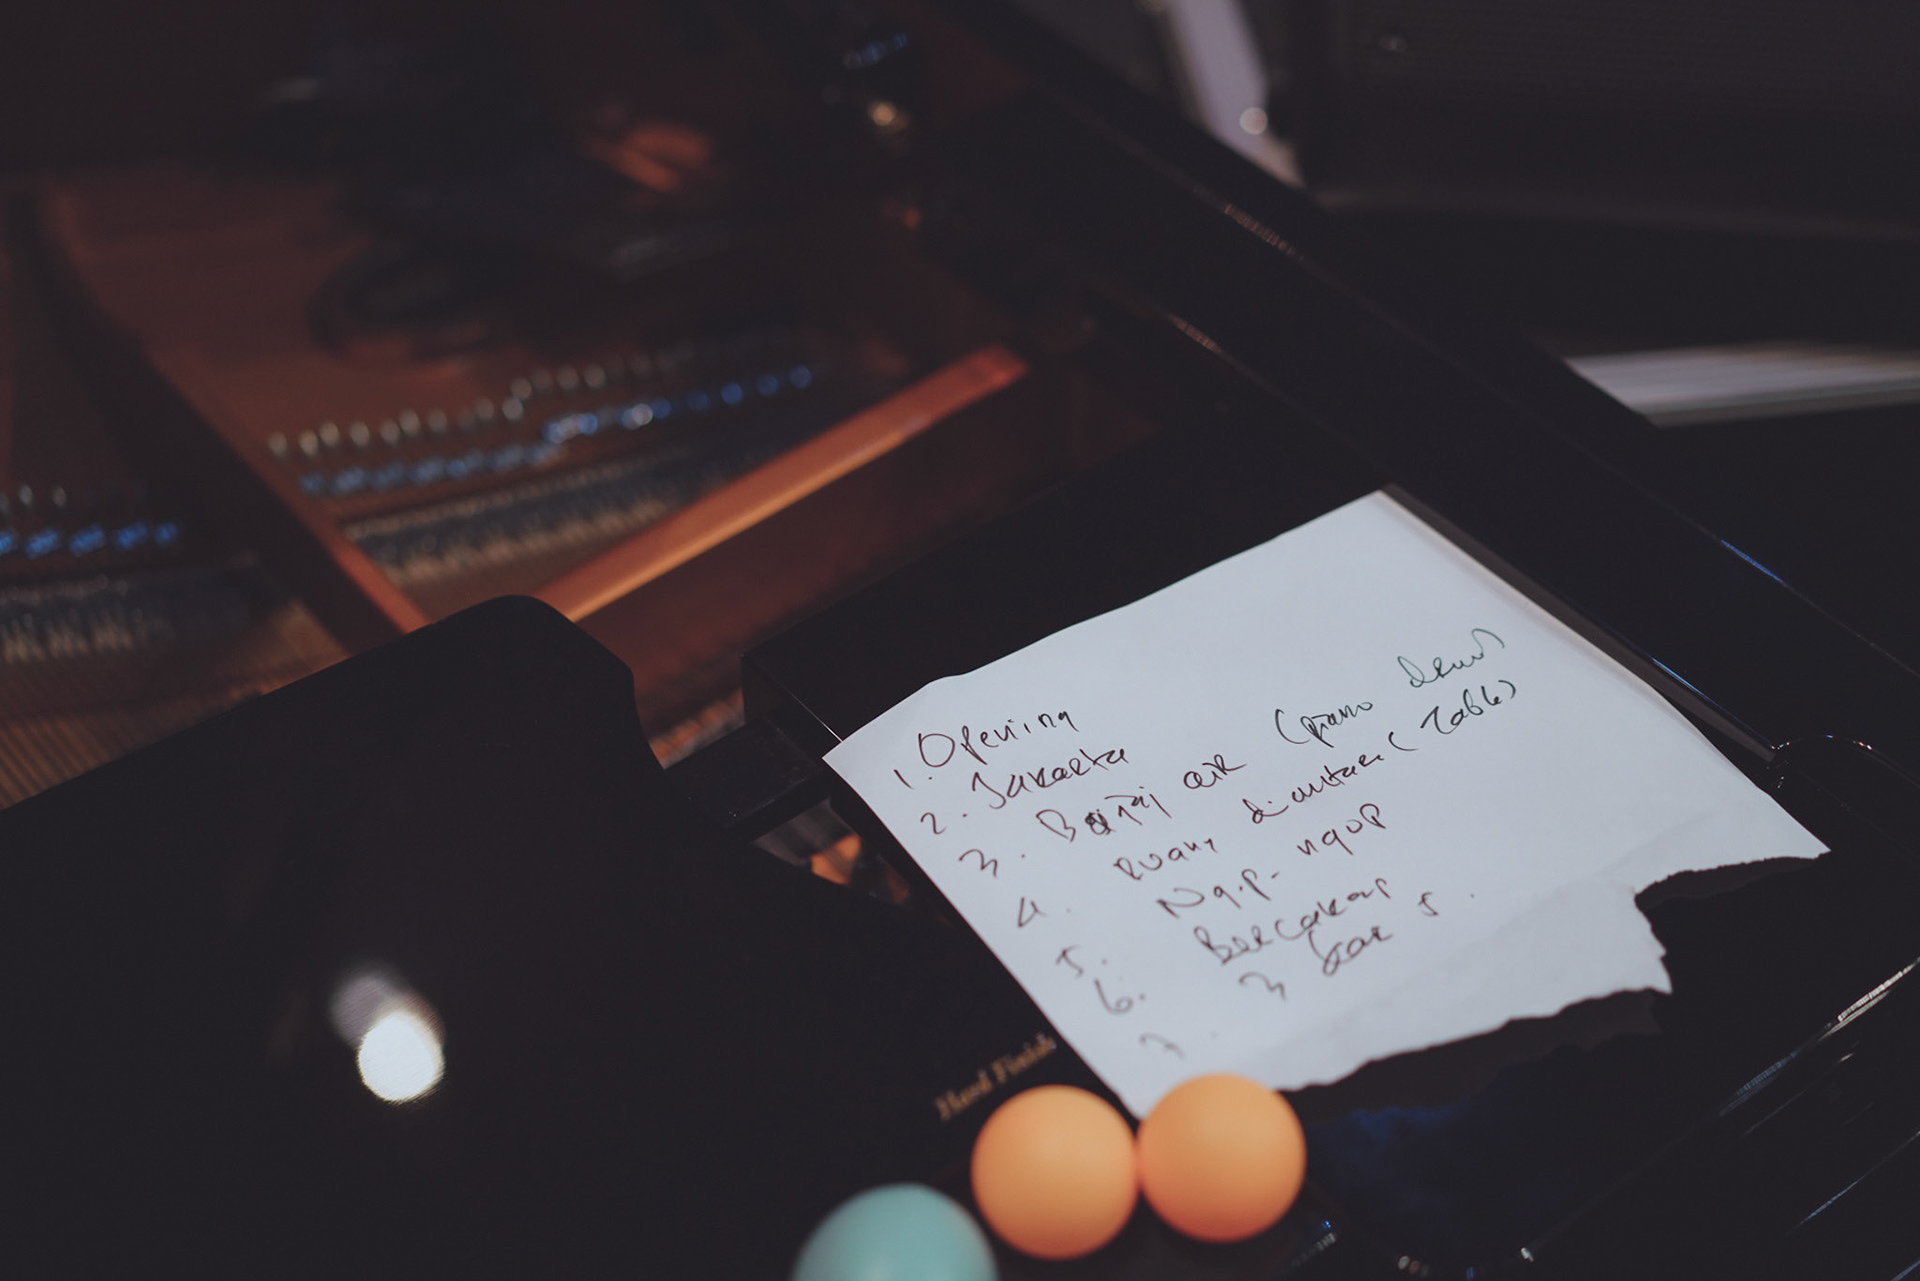 1. Opening
2. Jakarta
3. Bajaj air (piano
4. Ruang diantara (Table)
5. ngop
6. Bercakap
7. 3
Hand Finish